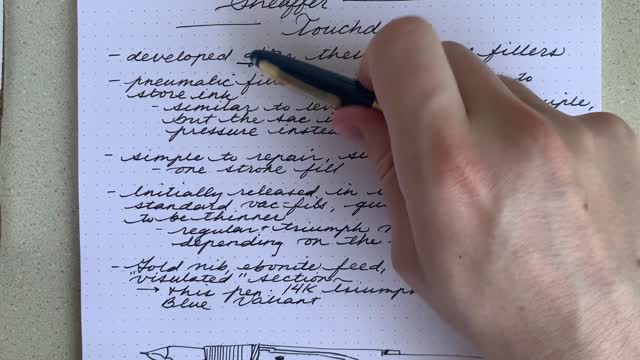 Sheaffer
Touchd
- developed these fillers
- pneumatic fil to
store ink
- similar to lev iple,
but the sac i
pressure instea
- simple to repair, si
- one stroke fill
- Initially released in
standard vac-fils, qu
to be thinner
- regular + triumph n
depending on the
- Gold nib, ebonite feed,
"visulated" section
→ this pen, 14K triumph
Blue Valiant